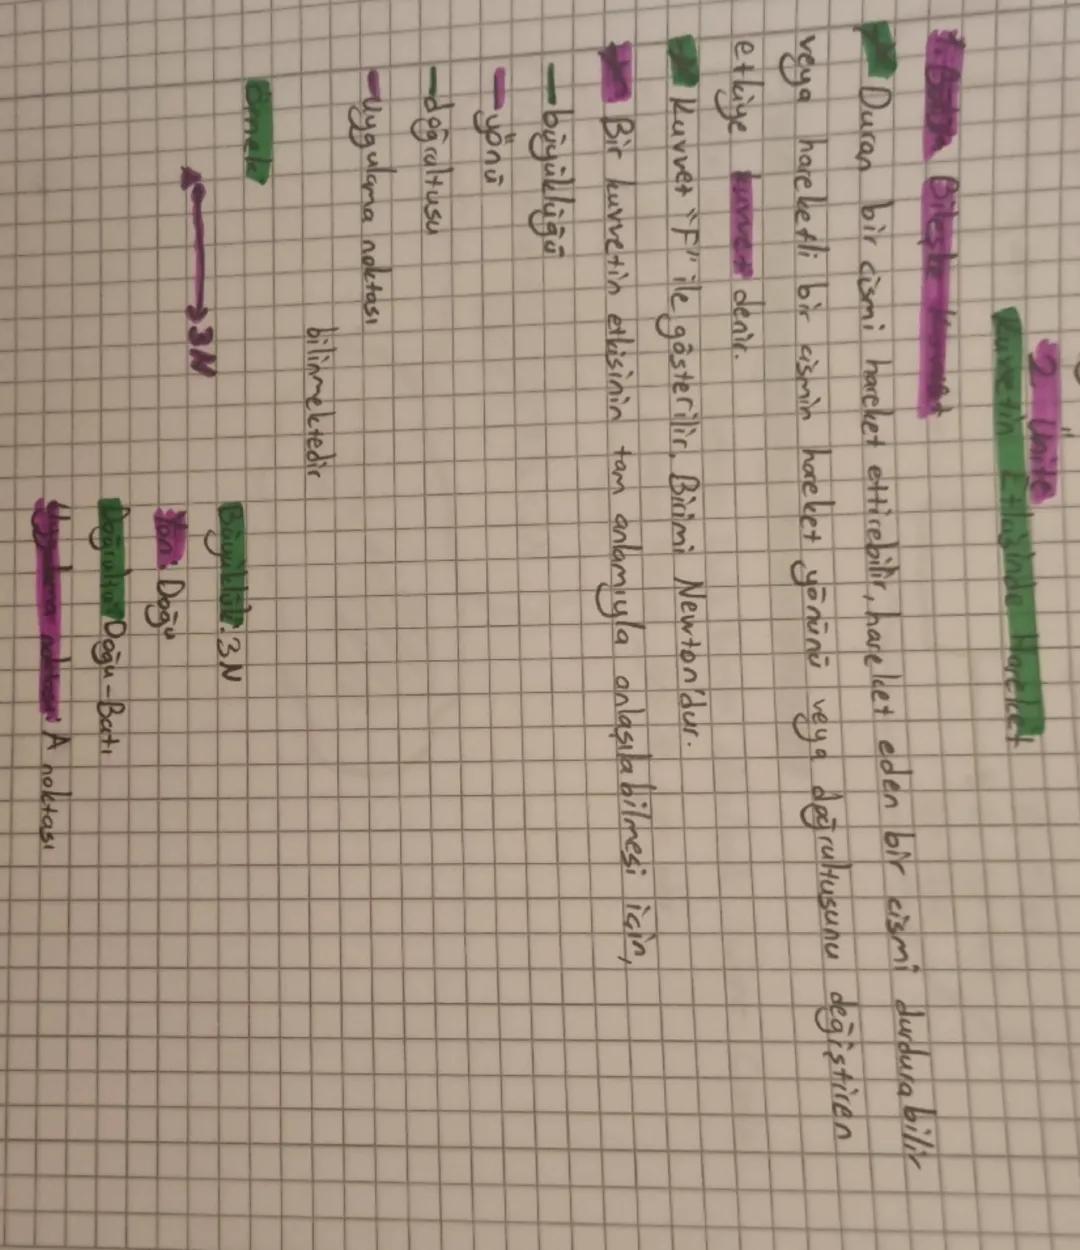 2. Ünite
Kuvvetin Etkisinde Hareket
Bileşke Kuvvet
Duran bir cismi hareket ettirebilir, hareket eden bir cismi durdurabilir
veya hareketli bir cismin hareket yönünü veya doğrultusunu değiştiren
etkiye kuvvet denir.
Kuvvet "F" ile gösterilir. Birimi Newton'dur.
Bir kuvvetin etkisinin tam anlamıyla anlaşılabilmesi için,
- büyüklüğü
- yönü
- doğrultusu
- Uygulama noktası
bilinmektedir
Örnek
3N
Büyüklük: 3N
Yön: Doğu
Doğrultu: Doğu-Batı
Uygulama noktası A noktası